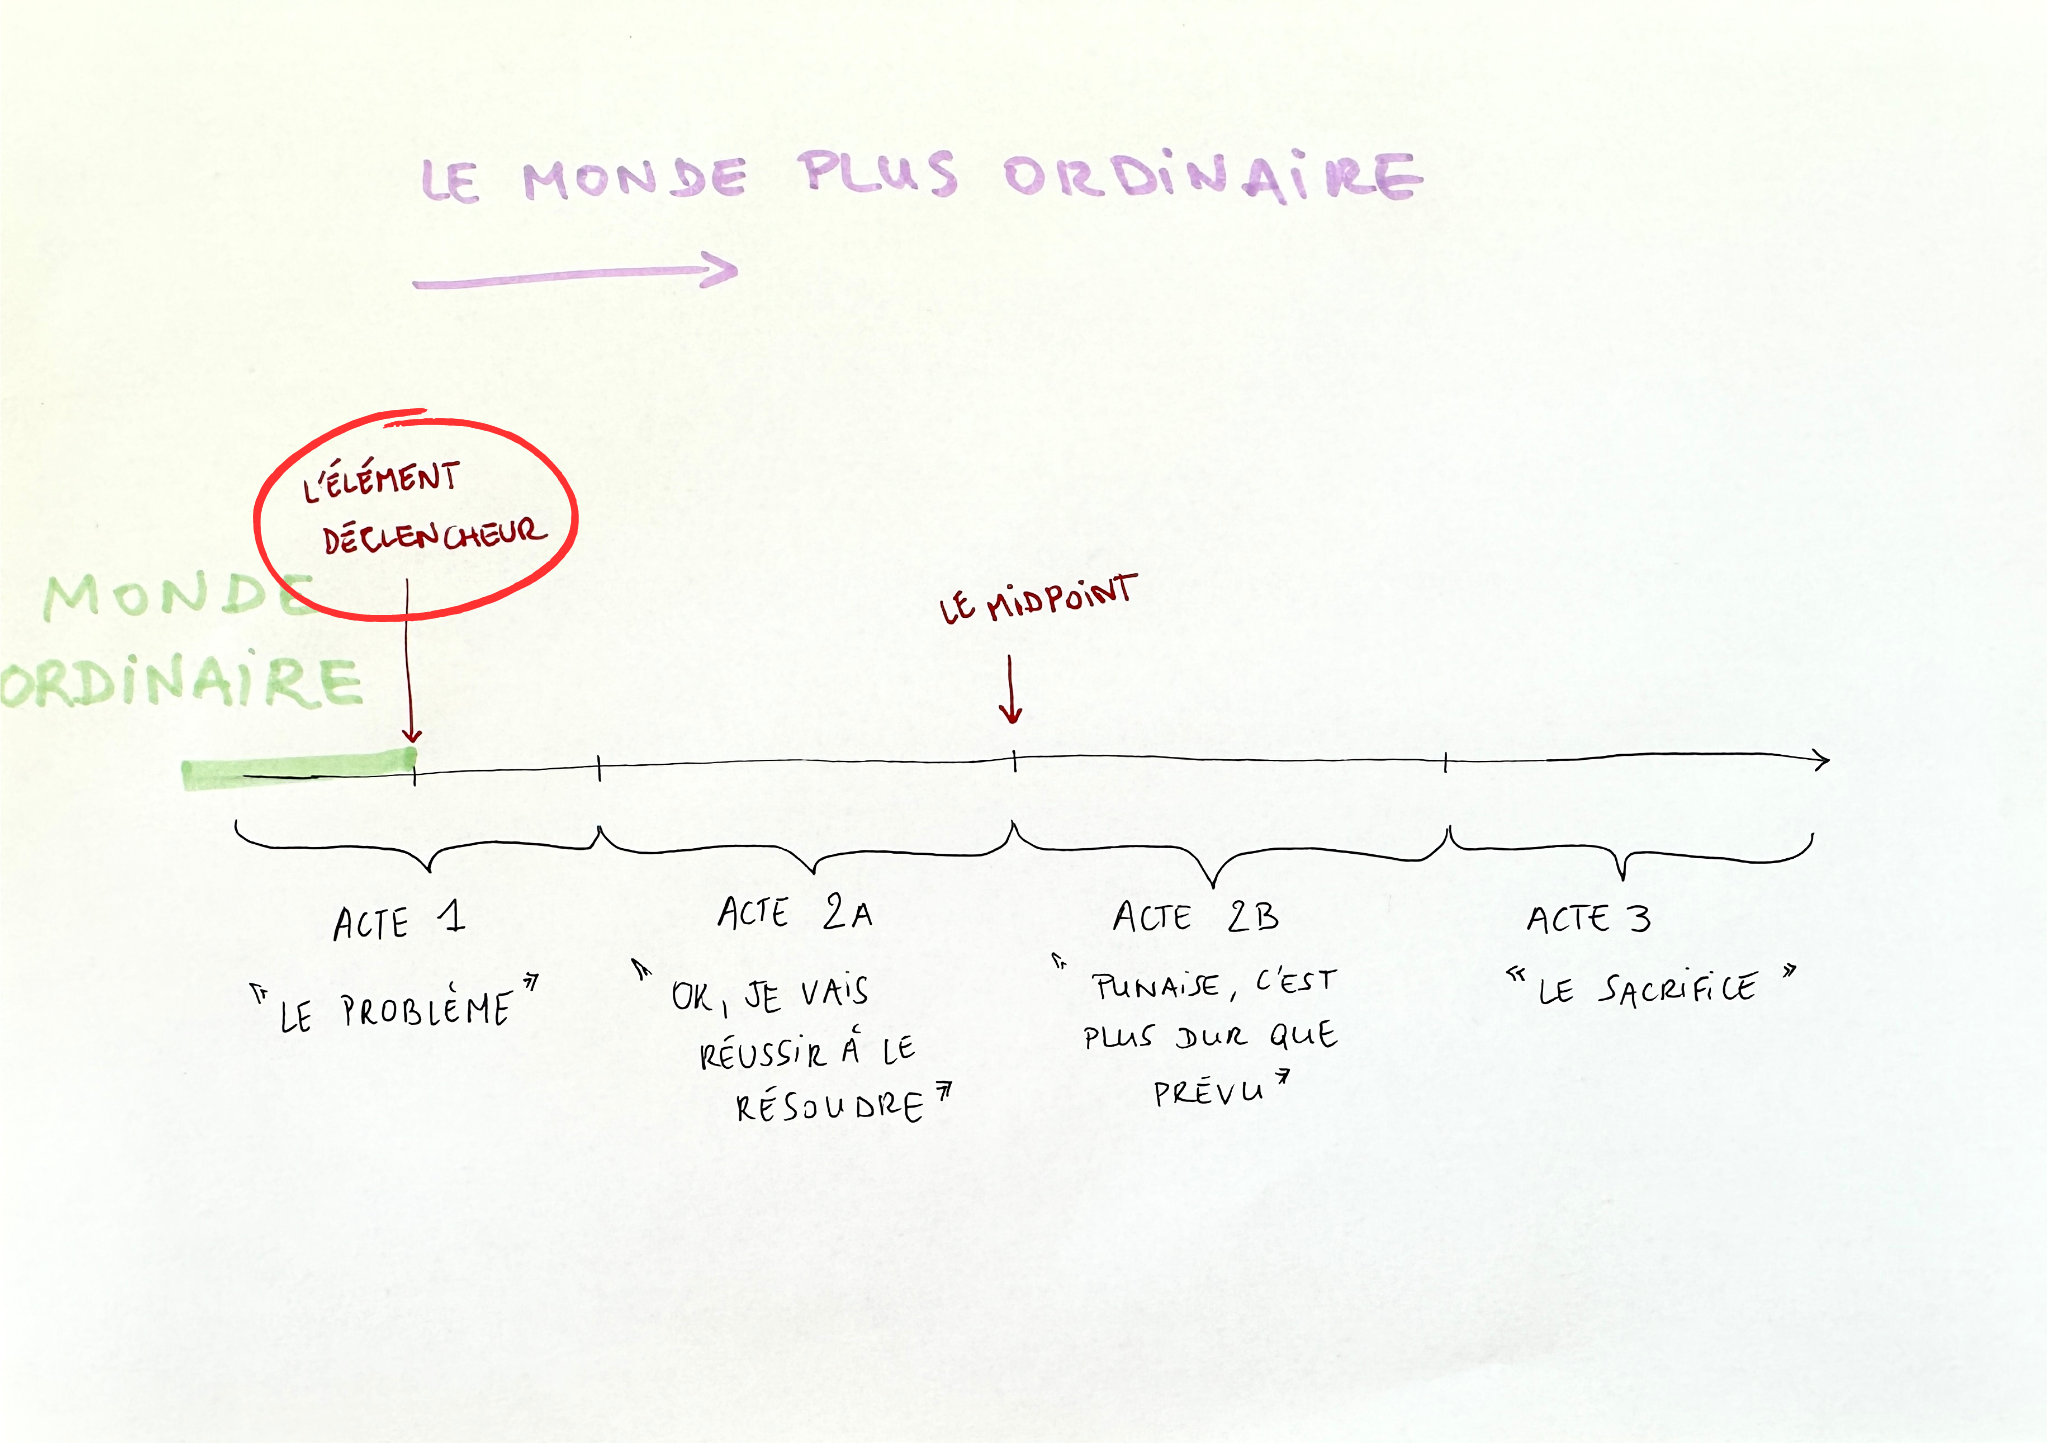 LE MONDE PLUS ORDINAIRE
L'ÉLÉMENT
DÉCLENCHEUR
MONDE
ORDINAIRE
LE MIDPOINT
ACTE 1
"LE PROBLÈME"
ACTE 2A
"OK, JE VAIS
RÉUSSIR À LE
RÉSOUDRE"
ACTE 2B
"PUNAISE, C'EST
PLUS DUR QUE
PRÉVU"
ACTE 3
« LE SACRIFICE »